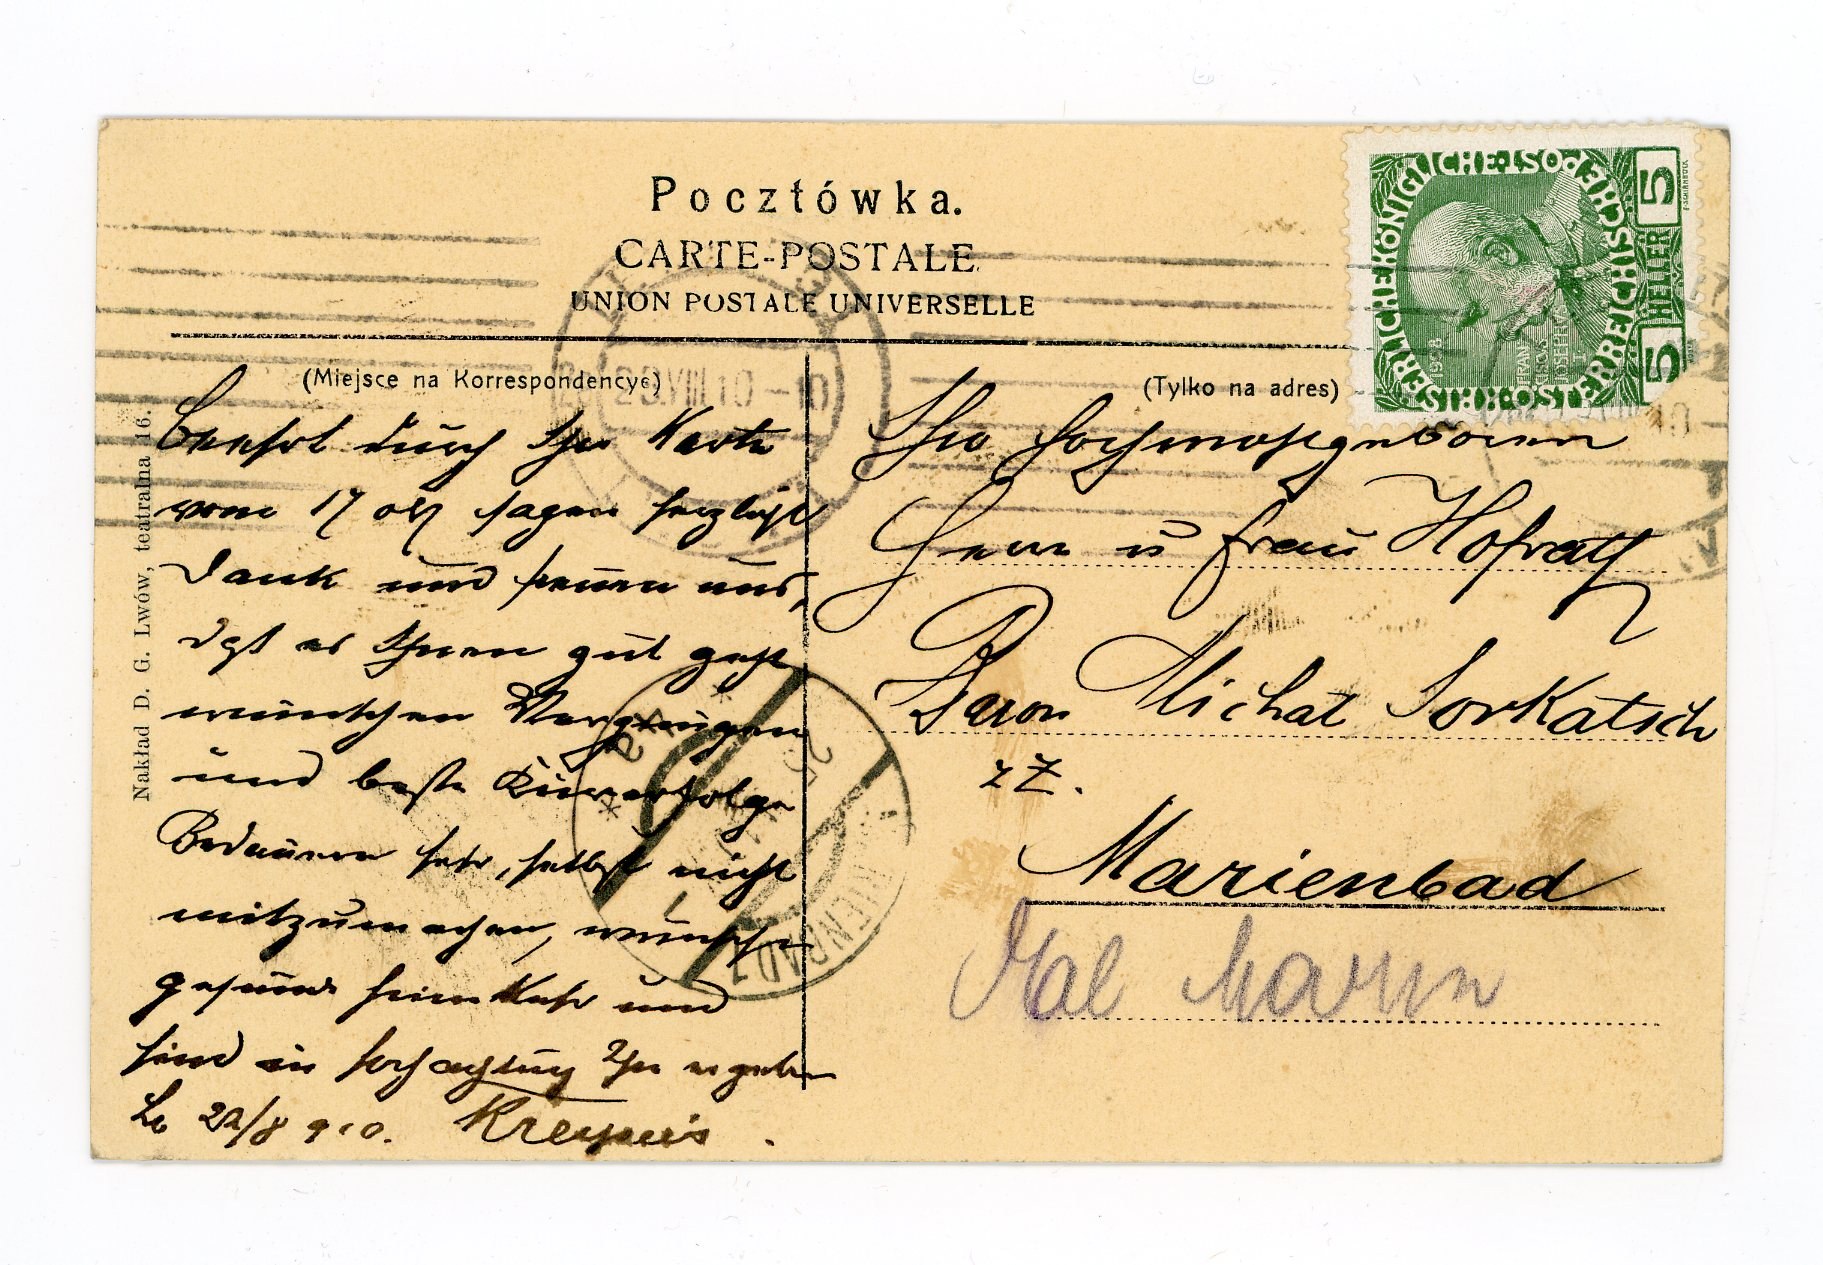 Pocztówka.
CARTE-POSTALE
UNION POSTALE UNIVERSELLE
(Miejsce na Korrespondencyę)
(Tylko na adres)
Nakład D. G. Lwów, teatralna 16.
KAISERLICHE KÖNIGLICHE ÖSTERREICHISCHE POST
5 HELLER 5
1848 1908
FRANZ JOSEPH I.
Beehrt durch Ihre Karte
vom 17 sagen herzlichst
Dank und freuen uns,
dß es Ihnen gut geht
wünschen Vergnügen
und beste Kurerfolge
Bedauern sehr, selbst nicht
mitzumachen, wünschen
gesunde Heimkehr und
sind in Hochachtung Ihr ergeben
Lb 22/8 910.
Ihro Hochwohlgeboren
Herrn u Frau Hofrath
Baron Michat Sorkatsch
zZ.
Marienbad
29.VIII.10-10
MARIENBAD 1